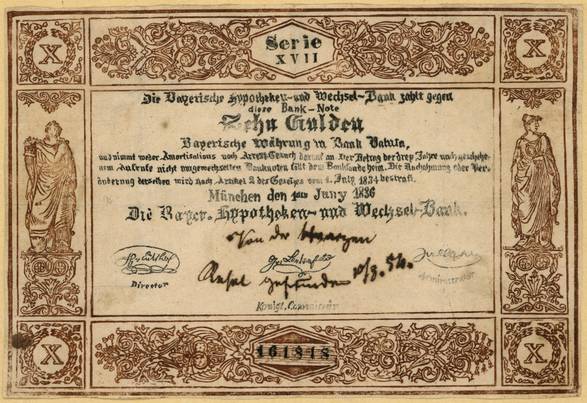 X
Serie
XVII
X
Die Bayerische Hypotheken- und Wechsel-Bank zahlt gegen
diese Bank-Note
Zehn Gulden
Bayerische Währung in Bank Valuta,
und nimmt weder Amortisations noch Arrest-Gesuch darauf an. Der Betrag der drey Jahre nach geschehe-
nem Aufrufe nicht umgewechselten Banknoten fällt dem Bankfonde heim. Die Nachahmung oder Ver-
änderung derselben wird nach Artikel 2 des Gesetzes vom 1. July 1834 bestraft.
München den 1ten Juny 1836
Die Bayer. Hypotheken- und Wechsel-Bank.
Von der
gefunden 10/3. 54.
Director
Administrator
Königl. Commissär
X
161818
X